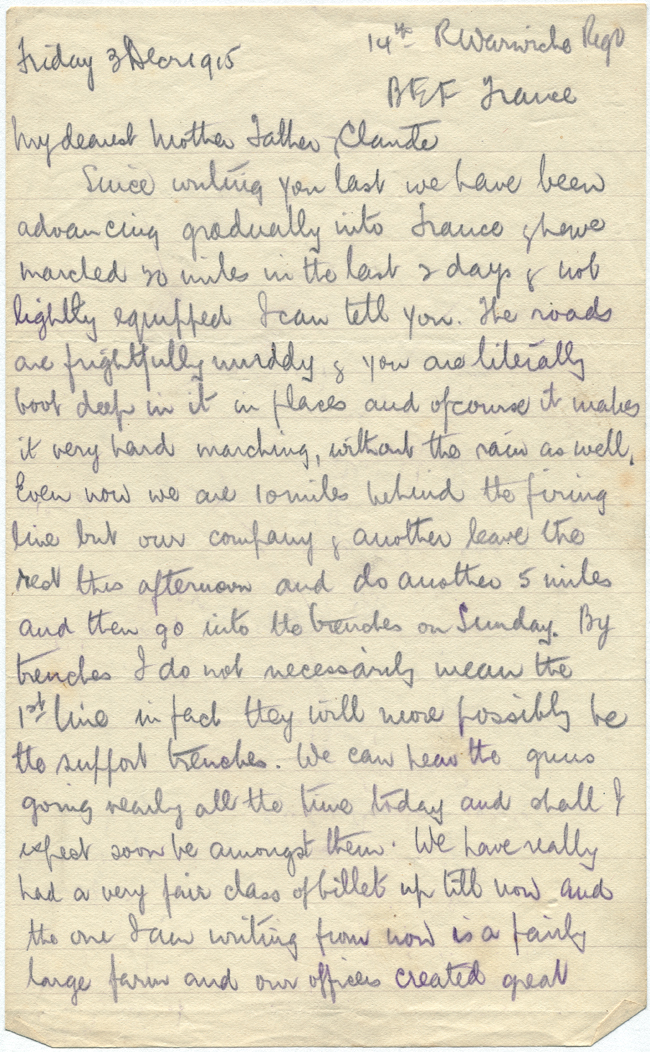 14th R Warwicks Regt
Friday 3 Decr 1915
BEF France
My dearest Mother Father & Claude
Since writing you last we have been
advancing gradually into France & have
marched 30 miles in the last 2 days & not
lightly equipped I can tell you. The roads
are frightfully muddy & you are literally
boot deep in it in places and ofcourse it makes
it very hard marching, without the rain as well,
Even now we are 10 miles behind the firing
line but our company & another leave the
rest this afternoon and do another 5 miles
and then go into the trenches on Sunday. By
trenches I do not necessarily mean the
1st line in fact they will more possibly be
the support trenches. We can hear the guns
going nearly all the time today and shall I
expect soon be amongst them. We have really
had a very fair class of billet up till now and
the one I am writing from now is a fairly
large farm and our officers created great